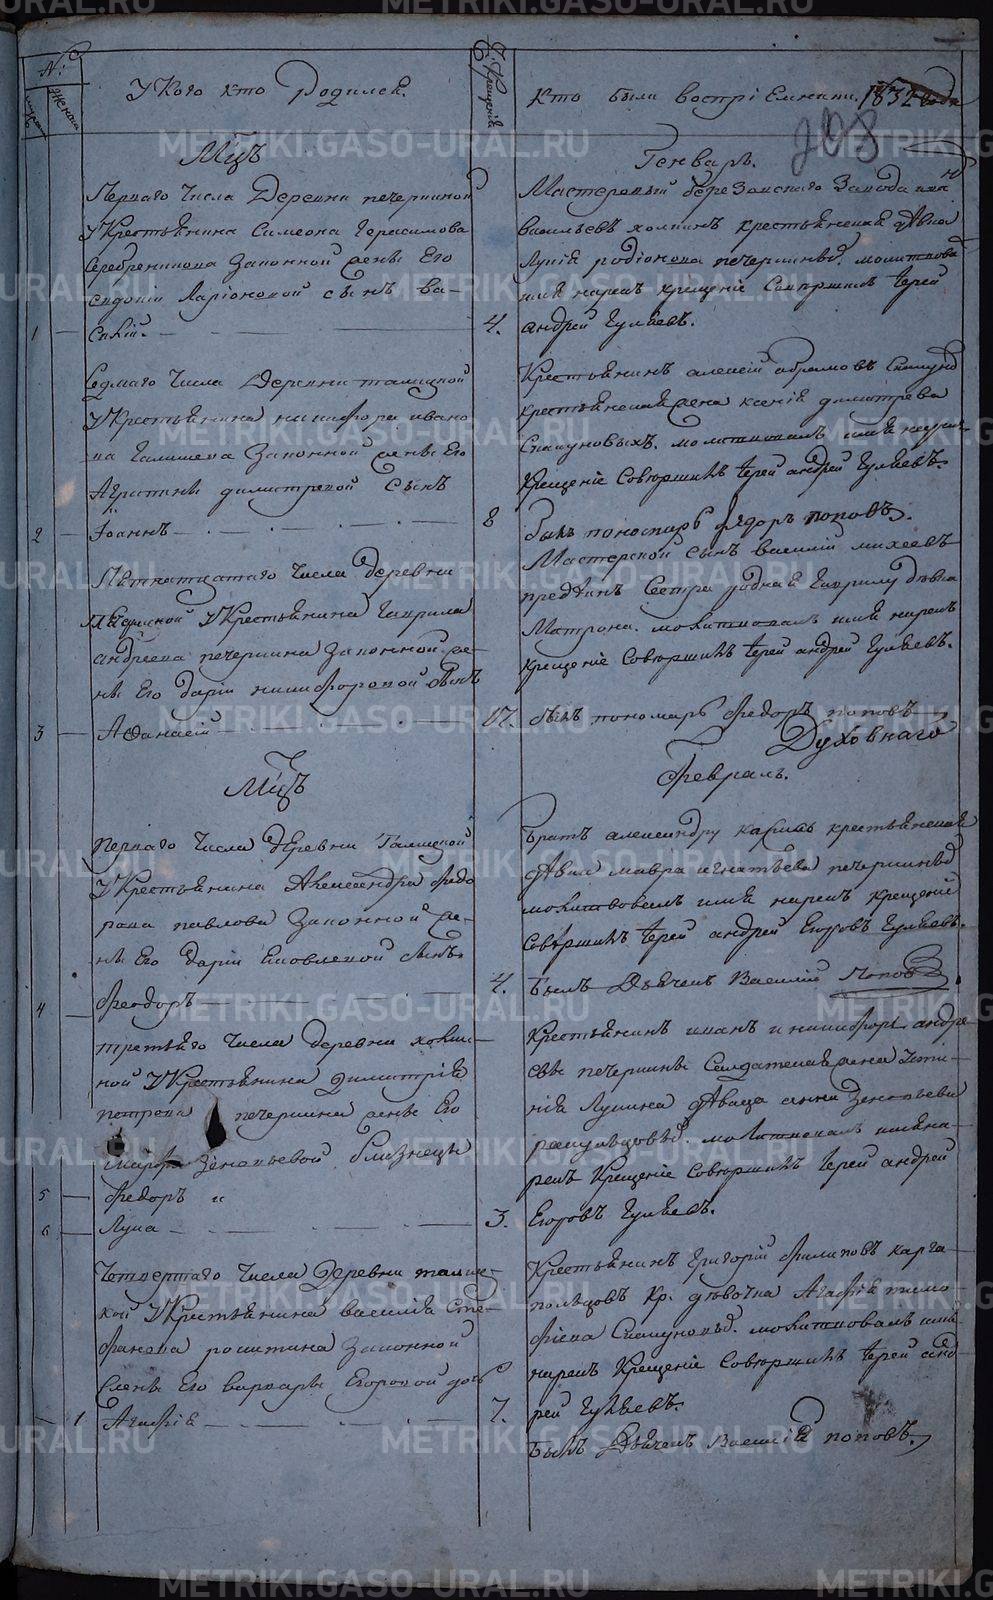 №
мужск:
женск:
У Кого кто Родился.
Крещенія
Кто были воспріемники. 1832 года
208
Мцъ
Генварь.
Перваго Числа Деревни печеркиной
У Крестьянина Симеона Герасимова
Серебреникова Законной жены Его
Ларіоновой сынъ ва-
1
силій.
4.
Мастеровый березовскаго Завода
васильевъ крестьянская дѣвка
родіонова молитвова
имя нарекъ крещеніе Совершилъ Іерей
андрей Гуляевъ.
Седмаго Числа Деревни талицкой
У Крестьянина никифора ивано
ва Галишева Законной жены Его
Агрипины димитревой Сынъ
2
Іоаннъ
8
Крестьянинъ алексій абрамовъ
крестьянская жена ксенія димитрева
молитвовалъ имя нарекъ
Крещеніе Совершилъ Іерей андрей Гуляевъ.
былъ пономарь фядоръ поповъ.
Пятнатцатаго Числа деревни
У Крестьянина Гаврила
андреева печеркина Законной же-
ны Его даріи никифоровой Сынъ
3
Афанасій
17.
Мастерской сынъ василій михеевъ
Сестра родная Гаврилу дѣвка
Матрона. молитвовалъ имя нарекъ
крещеніе Совершилъ Іерей андрей Гуляевъ.
былъ пономарь Федоръ поповъ
Духовнаго
Мцъ
Февраль.
перваго Числа деревни Талицкой
У Крестьянина Александра Федо
рова павлова Законной же-
ны Его даріи Яковлевой Сынъ
4
Феодоръ
4.
братъ александру крестьянская
дѣвка мавра игнатьева
молитвовалъ имя нарекъ Крещеніе
Совершилъ Іерей андрей Егоровъ Гуляевъ.
былъ Дьячекъ Василій Поповъ.
третьяго Числа деревни
У Крестьянина Димитрія
петрова печеркина жены Его
Зеновьевой близнецы
5
Федоръ и
6
Лука
3.
Крестьянинъ иванъ и никифоръ андре
евы печеркины Салдатская жена
Лукина дѣвица анна Зеновьева
молитвовалъ имя на-
рекъ Крещеніе Совершилъ Іерей андрей
Егоровъ Гуляевъ.
Четвертаго Числа Деревни талиц-
кой У Крестьянина василія Сте-
фанова Законной
жены Его варвары Егоровой дочь
1
Агафія
7.
Крестьянинъ Григорій филиповъ карга
польцовъ Кр: дѣвочка Агафія тимо
фіева молитвовалъ имя
нарекъ Крещеніе Совершилъ Іерей анд
рей Гуляевъ.
былъ Дьячекъ Василій поповъ.
METRIKI.GASO-URAL.RU